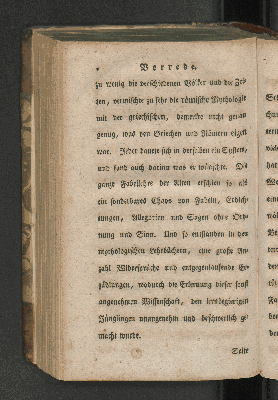 Vorrede.
zu wenig die verschiedenen Völker und die Zei-
ten, vermischte zu sehr die römische Mythologie
mit der griechischen, bemerkte nicht genau
genug, was von Griechen und Römern eigen
war. Jeder dauete sich in derselben ein System,
und fand auch darinn was er wünschte. Die
ganze Fabellehre der Alten erschien so als
ein sonderbares Chaos von Fabeln, Erdich-
tungen, Allegorien und Sagen ohne Ord-
nung und Sinn. Und so entstanden in den
mythologischen Lehrbüchern, eine große An-
zahl Widersprüche und entgegenlaufende Er-
zählungen, wodurch die Erlernung dieser sonst
angenehmen Wissenschaft, den lernbegierigen
Jünglingen unangenehm und beschwerlich ge-
macht wurde.
Selbst